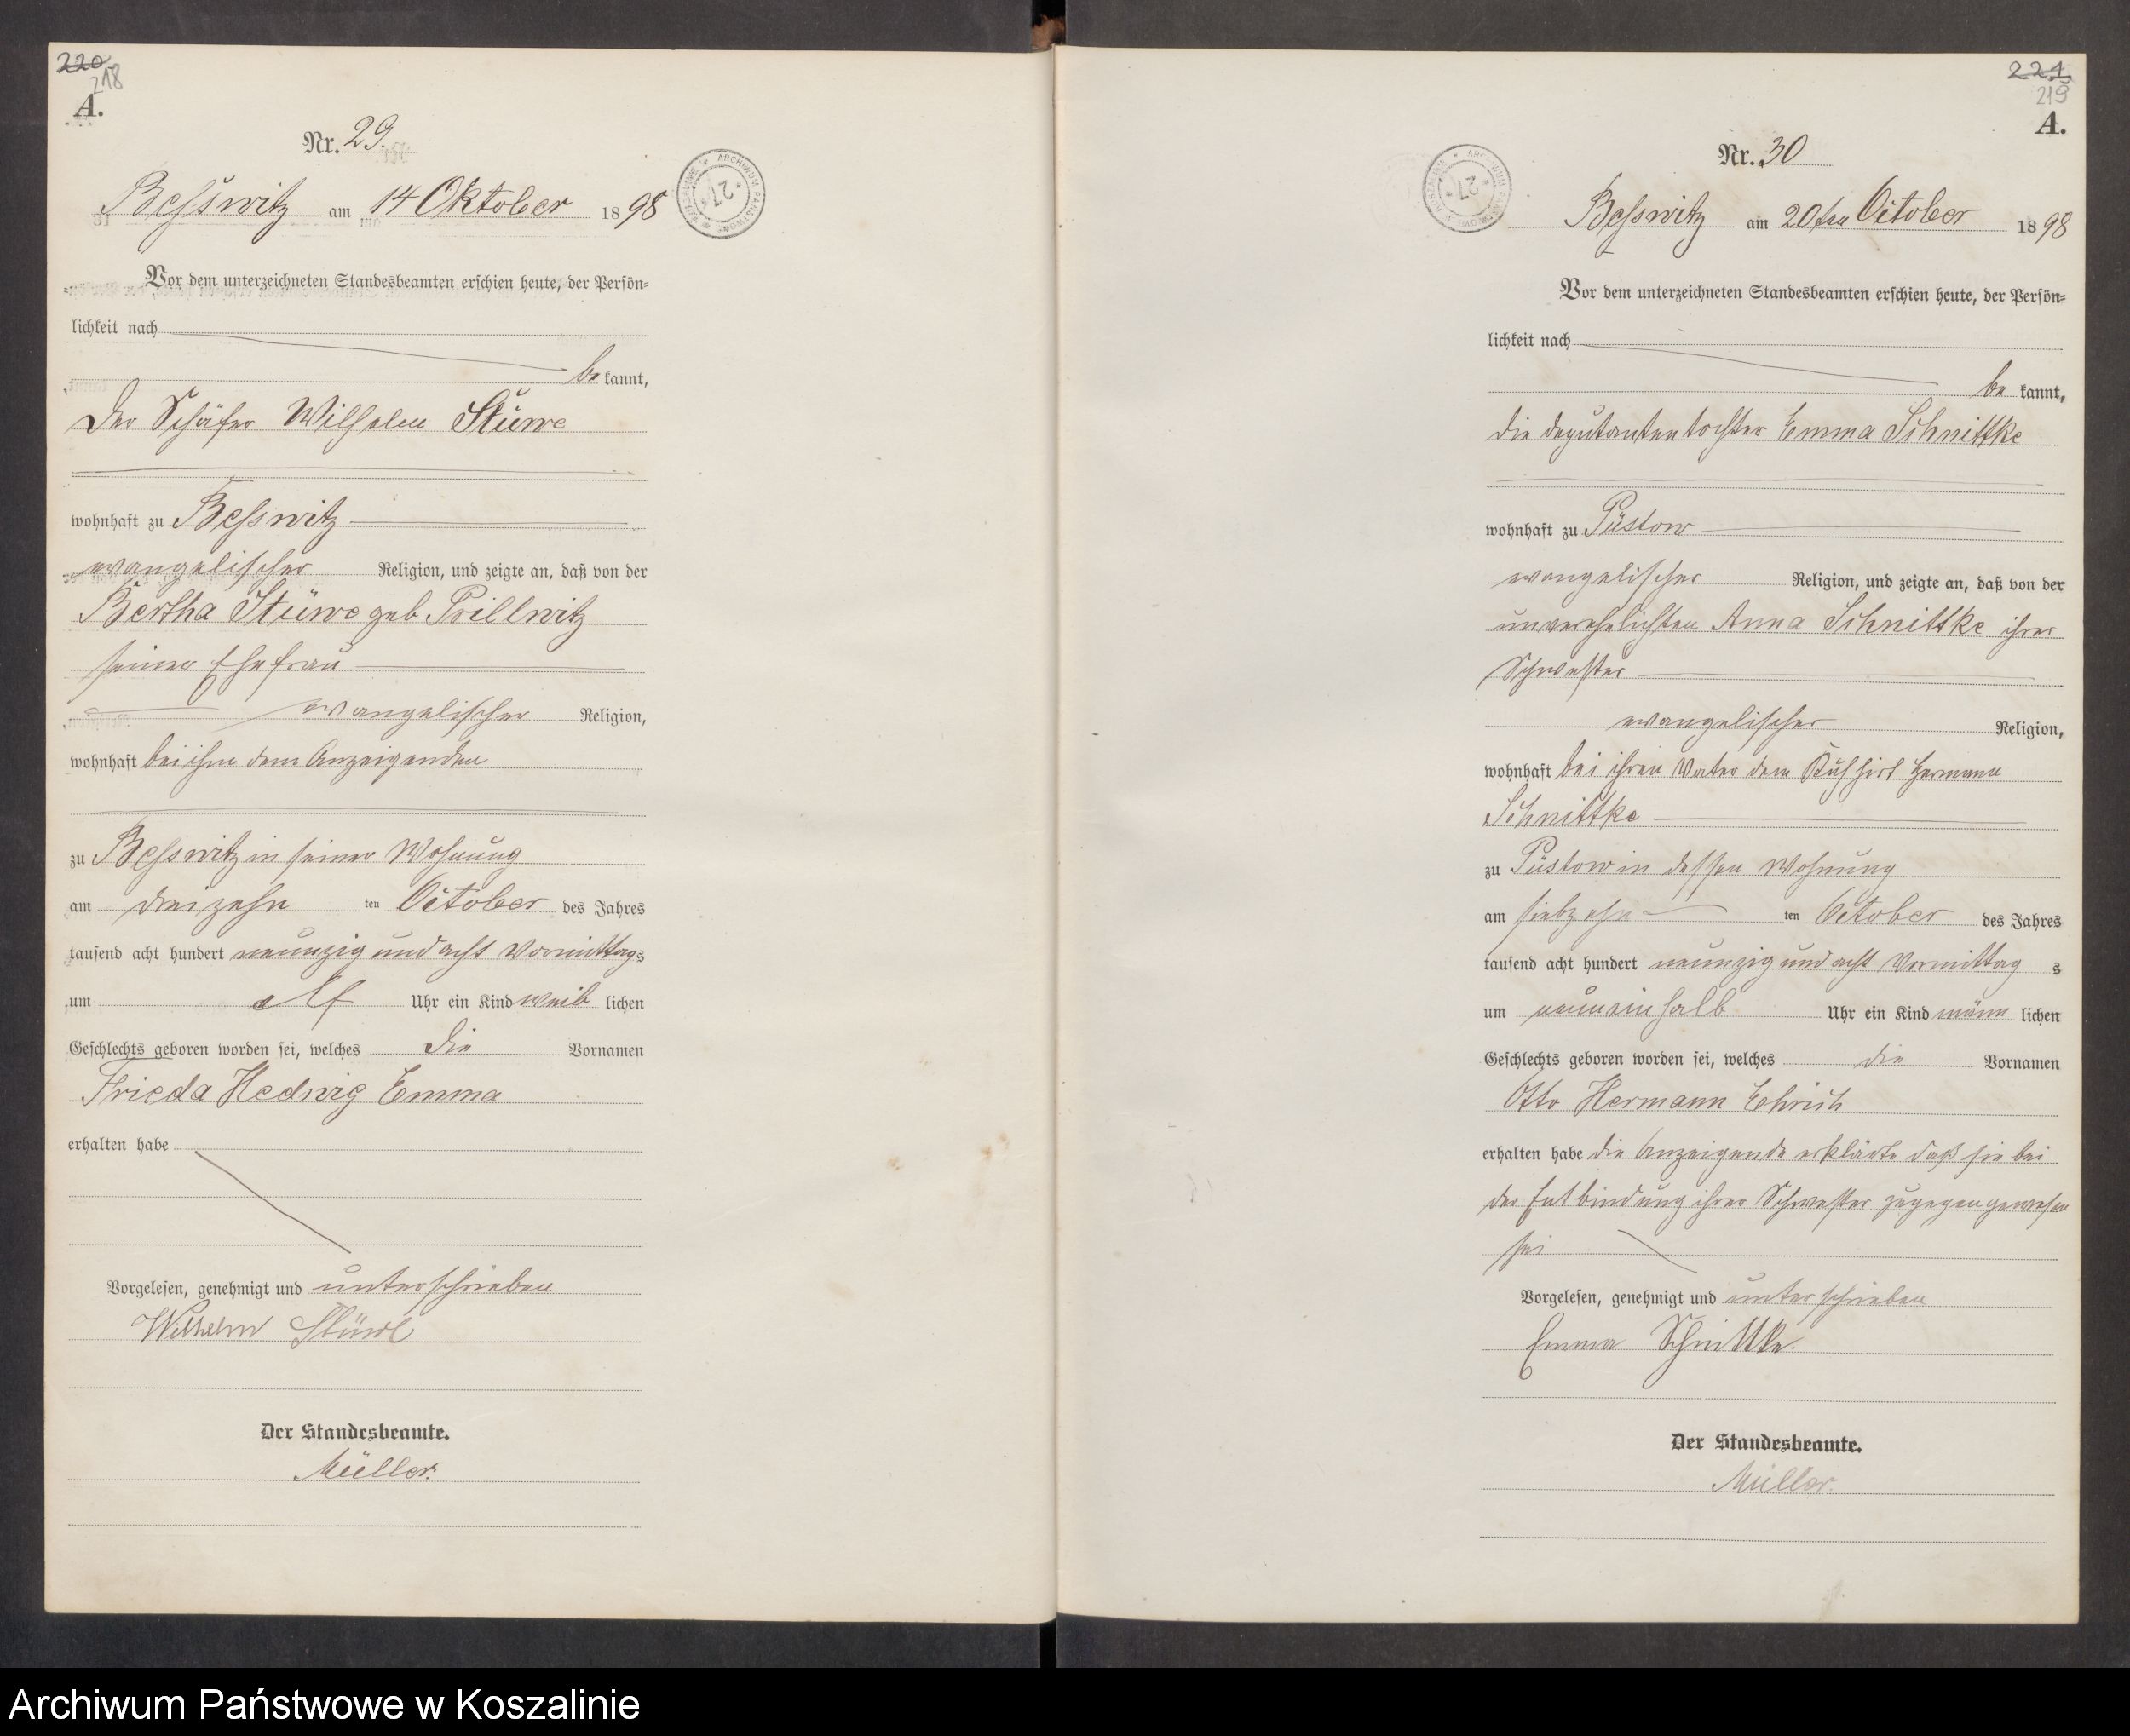 220
218
A.
Nr. 29.
Besswitz am 14 Oktober 1898
ARCHIWUM PAŃSTWOWE W KOSZALINIE
* 27 *
Vor dem unterzeichneten Standesbeamten erschien heute, der Persön=
lichkeit nach
bekannt,
der Schäfer Wilhelm Stüwe
wohnhaft zu Besswitz
evangelischer Religion, und zeigte an, daß von der
Bertha Stüwe geb. Prillwitz
seiner Ehefrau
evangelischer Religion,
wohnhaft bei ihm dem Anzeigenden
zu Besswitz in seiner Wohnung
am dreizehn ten October des Jahres
tausend acht hundert neunzig und acht Vormittags
um elf Uhr ein Kind weiblichen
Geschlechts geboren worden sei, welches die Vornamen
Frieda Hedwig Emma
erhalten habe
Vorgelesen, genehmigt und unterschrieben
Wilhelm Stüwe
Der Standesbeamte.
Müller.
221
219
A.
Nr. 30
ARCHIWUM PAŃSTWOWE W KOSZALINIE
* 27 *
Besswitz am 20ten October 1898
Vor dem unterzeichneten Standesbeamten erschien heute, der Persön=
lichkeit nach
bekannt,
die Deputantentochter Emma Schnittke
wohnhaft zu Püstow
evangelischer Religion, und zeigte an, daß von der
unverehelichten Anna Schnittke ihrer
Schwester
evangelischer Religion,
wohnhaft bei ihren Vater dem Kuhhirt Hermann
Schnittke
zu Püstow in dessen Wohnung
am siebzehn ten October des Jahres
tausend acht hundert neunzig und acht Vormittag s
um neuneinhalb Uhr ein Kind männlichen
Geschlechts geboren worden sei, welches die Vornamen
Otto Hermann Ehrich
erhalten habe die Anzeigende erklärte daß sie bei
der Entbindung ihrer Schwester zugegen gewesen
sei
Vorgelesen, genehmigt und unterschrieben
Emma Schnittke.
Der Standesbeamte.
Müller.
Archiwum Państwowe w Koszalinie